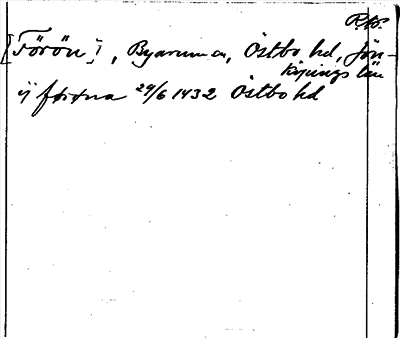 [Förön], Byarum sn, Östbo hd, Jön-
köpings län
ij førøna 29/6 1432 Östbo hd